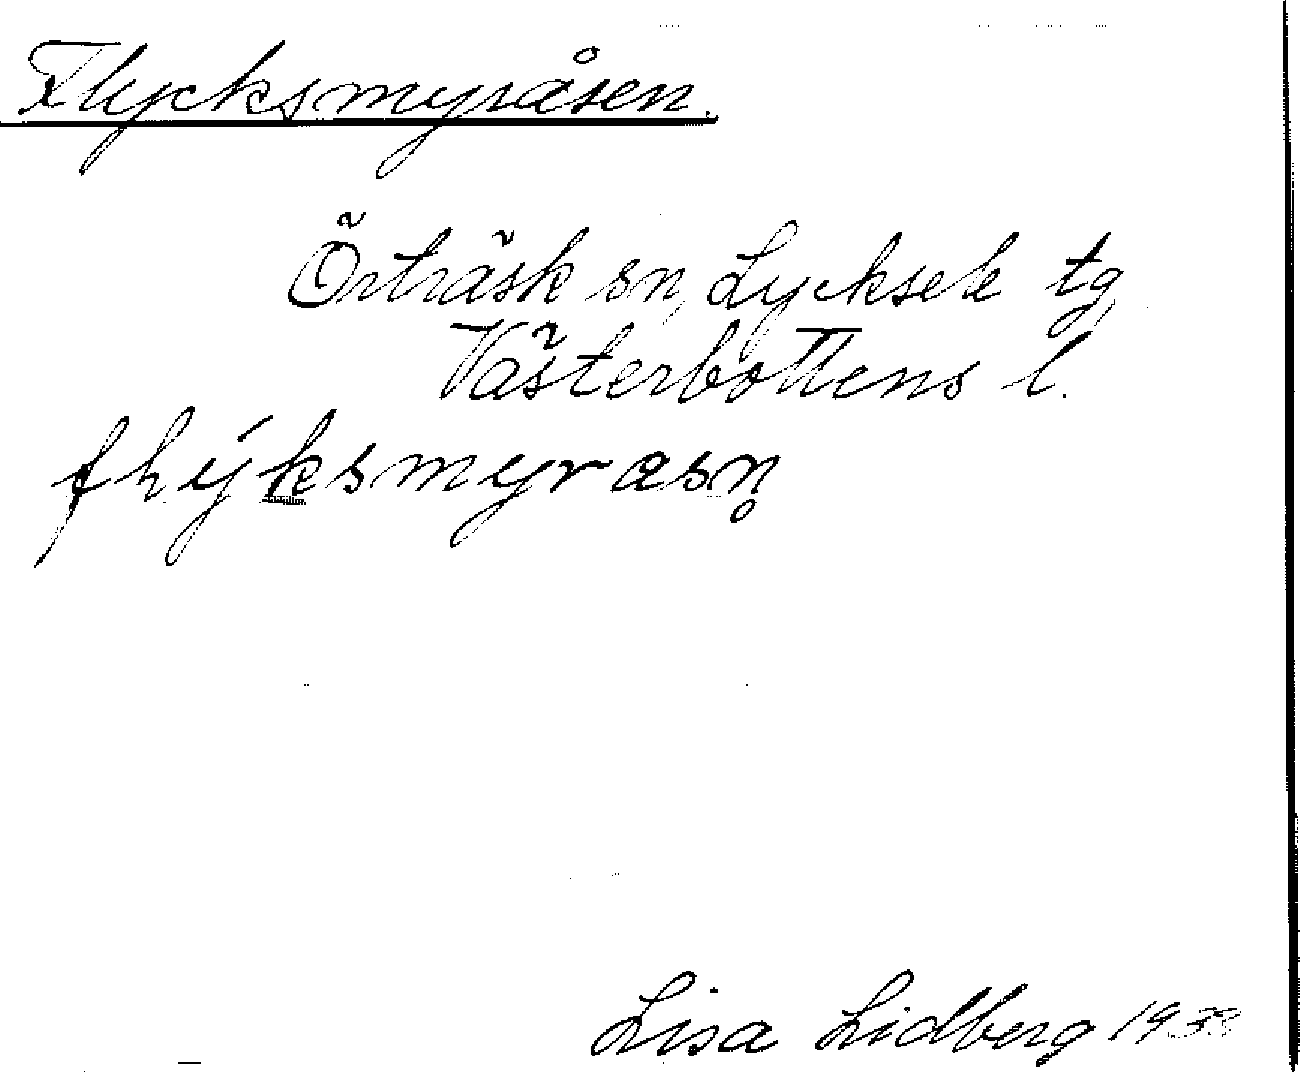 Flycksmyråsen.
Örträsk sn, Lycksele tg,
Västerbottens l.
Lisa Lidberg